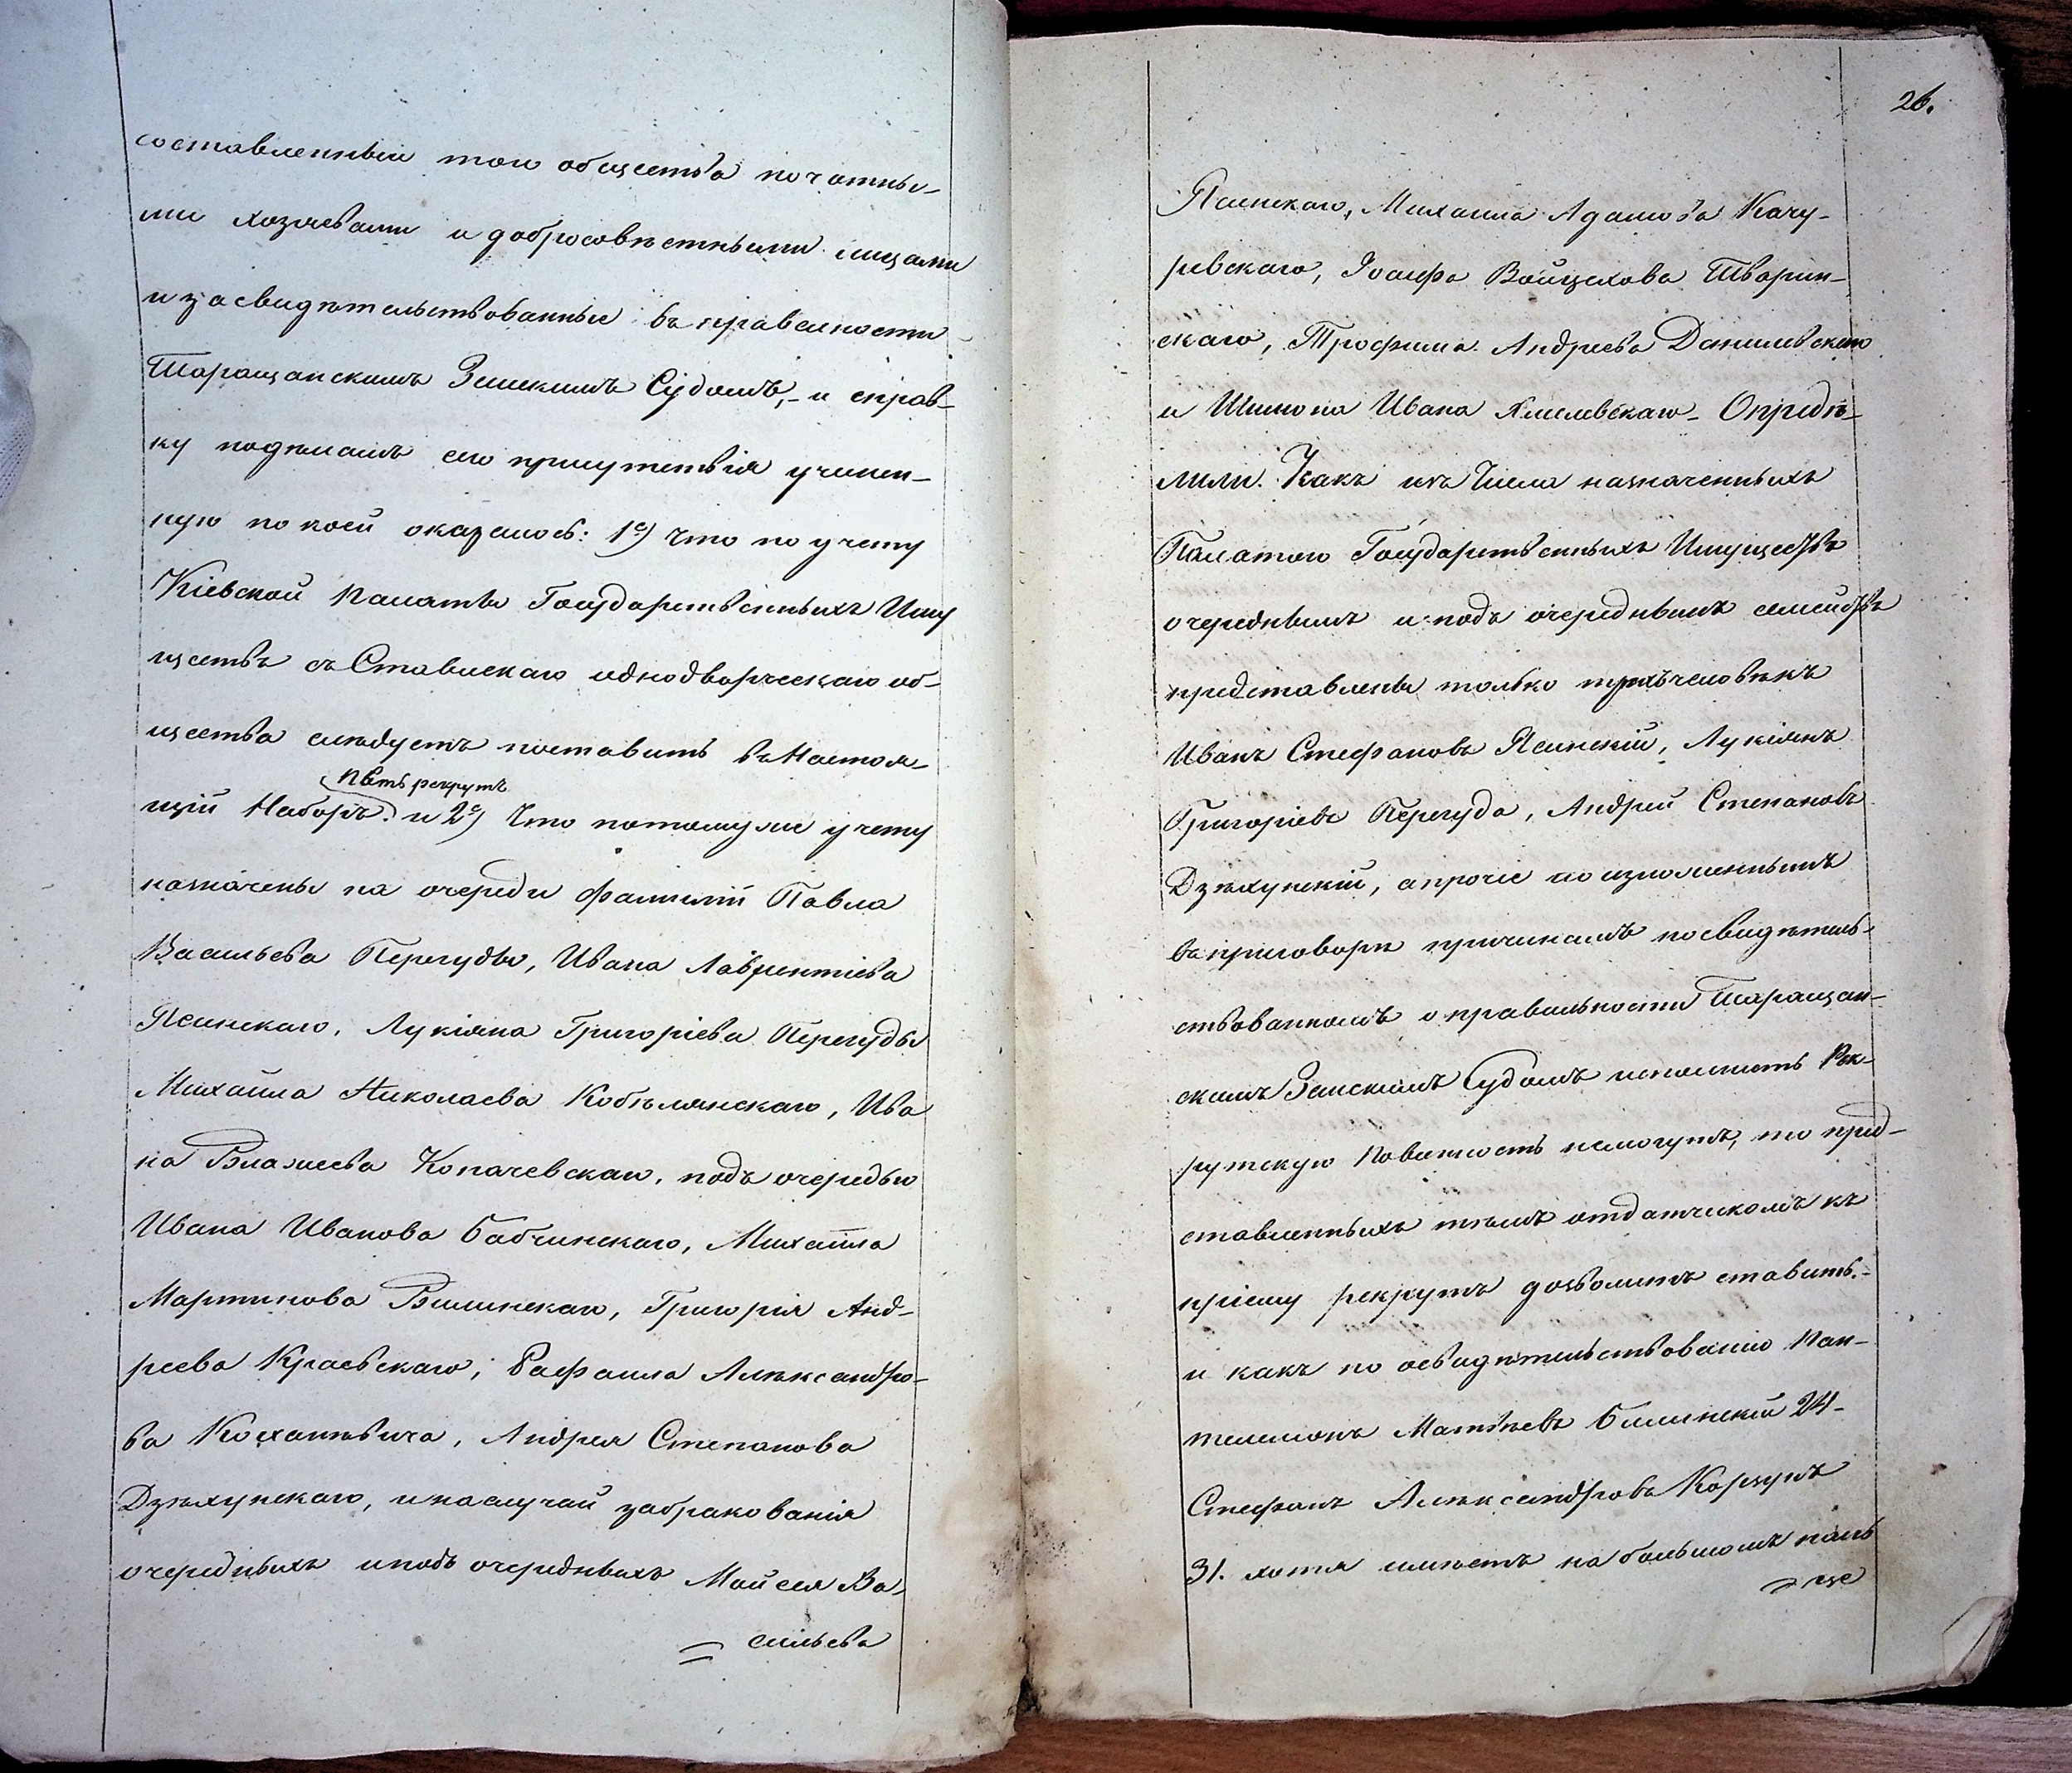 составленный того общества почотны-
ми хозяевами и добросовѣстными лицами
и засвидѣтельствованные въ правелности
Таращанскимъ Земскимъ Судомъ,- и справ-
ку подѣламъ сего присутствія учинен-
ную по коей оказалось: 1е) Что по учету
Кіевской Палаты Государственныхъ Иму
ществъ съ Ставискаго однодворческаго об-
щества слѣдуетъ поставить въ Настоя-
пять рекрутъ
щій Наборъ. и 2е) Что потомуже учету
назначены на очереди фамиліи Павла
Васильева Перегуды, Ивана Лаврентіева
Ясинскаго, Лукіяна Григоріева Перегуды
Михаила Николаева Кобѣлянскаго, Ива
на Влазиева Копачевскаго, подъ очередью
Ивана Иванова Бабчинскаго, Михаила
Мартинова Вилинскаго, Григорія Анд-
реева Краевскаго, Рафаила Алѣксандро-
ва Коханѣвича, Андрея Степанова
Дзѣхунскаго, инаслучай забракованія
очередныхъ иподъ очередныхъ Мойсея Ва-
сильева
26.
Ясинскаго, Михаила Адамова Качу-
ревскаго, Іосифа Войцехова Творин-
скаго, Трофима Андреева Данилевскаго
и Шимона Ивана Хмелевскаго - Опредѣ-
лили. Какъ изъ Числа назначенныхъ
Палатою Государственныхъ Имуществъ
очереднымъ и подъ очереднымъ семействъ
представлены только трехъ человѣкъ
Иванъ Стефановъ Ясинскій, Лукіянъ
Григоріевъ Перегуда, Андрей Степановъ
Дзѣхунскій, апрочіе по изложеннымъ
въ приговорѣ причинамъ посвидѣтель-
ствованномъ о правильности Таращан-
скимъ Земскимъ Судомъ исполнить Рек-
рутскую Повинность немогутъ, то пред-
ставленныхъ тѣмъ отдатчикомъ къ
пріему рекрутъ дозволить ставить.-
и какъ по освидѣтельствованію Пан-
телимонъ Матѣевъ Билинскій 24-
Стефанъ Алѣксандровъ Корзунъ
31. хотя имѣетъ на большомъ паль
це